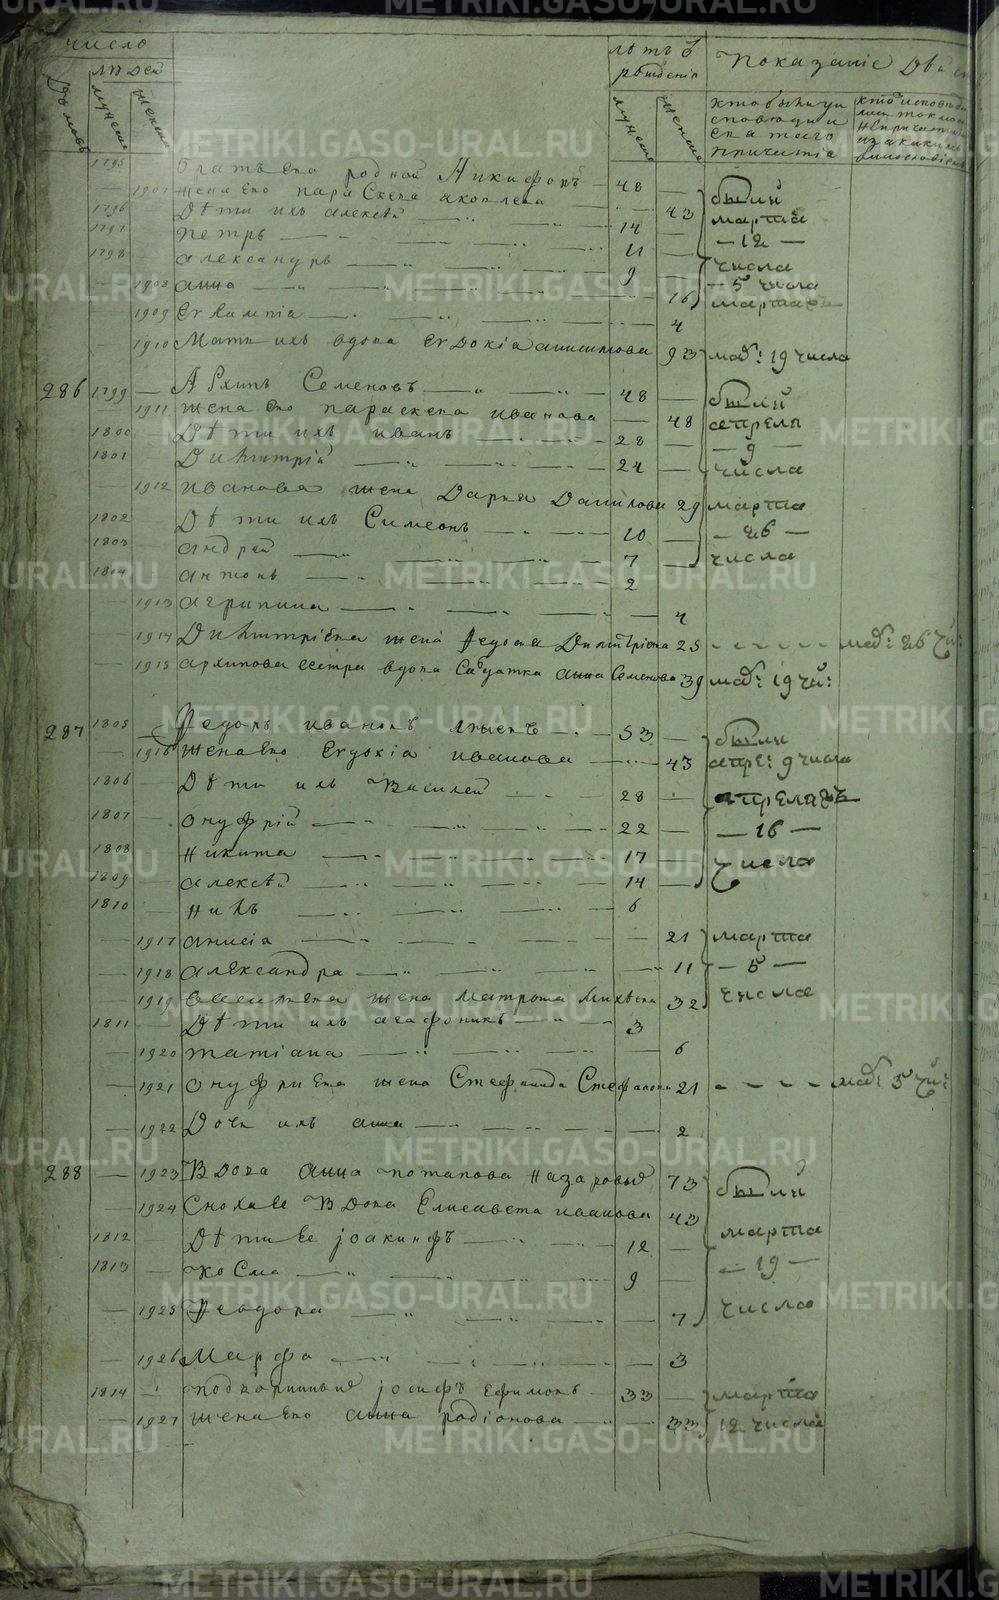 число
людей
летъ ѿ рожденія
Показаніе
Домовъ
мужеска
женска
мужеска
женска
кто были у исповѣди и святаго причастія
1795 братъ его родной Никифоръ 48
1907 жена его параскева яковлева 43 были
1796 Дѣти ихъ алексѣй 14 марта
1797 петръ 11 12
1798 александръ 9 числа
1908 анна 16 5 числа
1909 Евлампіа 4 марта
1910 Мать ихъ вдова Евдокіа анисимова 93 мар: 19 числа
286 1799 Архипъ Семеновъ 48
1911 жена его параскева иванова 48 были апреля
1800 Дѣти ихъ иванъ 28 9
1801 Димитрій 24 числа
1912 иванова жена Дарья Данилова 29 марта
1802 Дѣти ихъ Симеонъ 10 26
1803 андрей 7 числа
1804 антонъ 2
1913 агрипина 4
1914 Димитріева жена Федосья Димитріева 25 мар: 26 чи:
1915 архипова сестра вдова Салдатка анна Семенова 39 мар: 19 чи:
287 1805 Федоръ ивановъ 53 были
1916 жена его Евдокіа иванова 43 апре: 9 числа
1806 Дѣти ихъ Василей 28 апреля
1807 онуфрій 22 16
1808 Никита 17 числа
1809 алексѣй 14
1810 Нилъ 6
1917 анисіа 21 марта
1918 александра 11 5
1919 васильева жена Матрона Михѣева 32 числа
1811 Дѣти ихъ агафоникъ 3
1920 татіана 6
1921 онуфриева жена Стефанида Стефанова 21 мар: 5 чи:
1922 Дочь ихъ анна 2
288 1923 Вдова анна потапова Назаровыхъ 73 были
1924 Сноха ее Вдова Елисавета иванова 43 марта
1812 Дѣти ее іоакинфъ 12 19
1813 косма 9
1925 Феодора 7 числа
1926 Марфа 3
1814 подворникъ іосифъ Ефимовъ 33 марта
1927 жена его анна родіонова 33 12 числа
METRIKI.GASO-URAL.RU